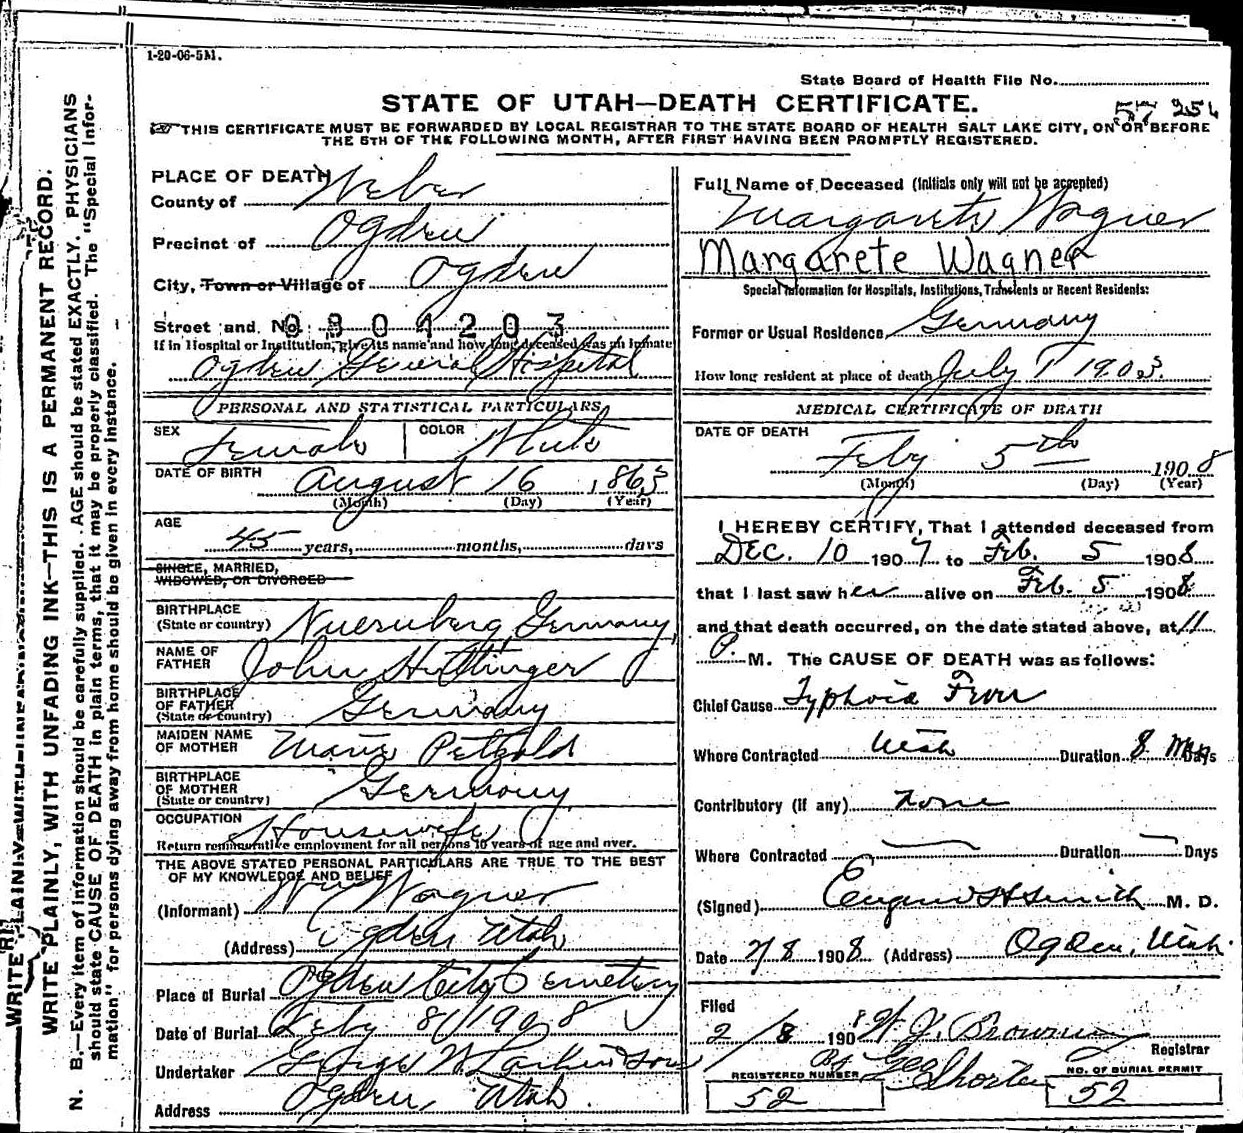 1-20-06-5M.
State Board of Health File No.
STATE OF UTAH—DEATH CERTIFICATE.
57 251
THIS CERTIFICATE MUST BE FORWARDED BY LOCAL REGISTRAR TO THE STATE BOARD OF HEALTH SALT LAKE CITY, ON OR BEFORE
THE 5TH OF THE FOLLOWING MONTH, AFTER FIRST HAVING BEEN PROMPTLY REGISTERED.
WRITE PLAINLY, WITH UNFADING INK—THIS IS A PERMANENT RECORD.
N. B.—Every item of information should be carefully supplied. AGE should be stated EXACTLY. PHYSICIANS
should state CAUSE OF DEATH in plain terms, that it may be properly classified. The "Special Infor-
mation" for persons dying away from home should be given in every instance.
PLACE OF DEATH
County of Weber
Precinct of Ogden
City, Town or Village of Ogden
Street and No. 0904203
If in Hospital or Institution, give its name and how long deceased was an inmate
Ogden General Hospital
PERSONAL AND STATISTICAL PARTICULARS
SEX Female COLOR White
DATE OF BIRTH August 16 1863
(Month) (Day) (Year)
AGE
45 years, months, days
SINGLE, MARRIED,
WIDOWED, OR DIVORCED
BIRTHPLACE
(State or country) Nuernberg Germany
NAME OF
FATHER John Huttinger
BIRTHPLACE
OF FATHER
(State or country) Germany
MAIDEN NAME
OF MOTHER Marie Petzold
BIRTHPLACE
OF MOTHER
(State or country) Germany
OCCUPATION Housewife
Return remunerative employment for all persons 10 years of age and over.
THE ABOVE STATED PERSONAL PARTICULARS ARE TRUE TO THE BEST
OF MY KNOWLEDGE AND BELIEF
(Informant) Wm Wagner
(Address) Ogden Utah
Place of Burial Ogden City Cemetery
Date of Burial Feby 8 1908
Undertaker George W. Larkin & Sons
Address Ogden Utah.
Full Name of Deceased (Initials only will not be accepted)
Margarete Wagner
Margarete Wagner
Special Information for Hospitals, Institutions, Transients or Recent Residents:
Former or Usual Residence Germany
How long resident at place of death July 1 1903.
MEDICAL CERTIFICATE OF DEATH
DATE OF DEATH
Feby 5th 1908
(Month) (Day) (Year)
I HEREBY CERTIFY, That I attended deceased from
DEC. 10 1907 to Feb. 5 1908
that I last saw her alive on Feb. 5 1908
and that death occurred, on the date stated above, at 11
P. M. The CAUSE OF DEATH was as follows:
Chief Cause Typhoid Fever
Where Contracted Utah Duration 8 Days
Contributory (if any) None
Where Contracted Duration Days
(Signed) Eugene H Smith M. D.
Date 2/8 1908 (Address) Ogden, Utah.
Filed
2/8 1908 W. J. Browning
Registrar
By Geo Shorten
REGISTERED NUMBER
52
NO. OF BURIAL PERMIT
52